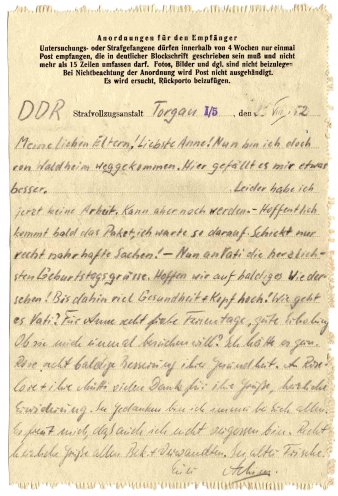 Anordnungen für den Empfänger
Untersuchungs- oder Strafgefangene dürfen innerhalb von 4 Wochen nur einmal
Post empfangen, die in deutlicher Blockschrift geschrieben sein muß und nicht
mehr als 15 Zeilen umfassen darf. Fotos, Bilder und dgl. sind nicht beizulegen
Bei Nichtbeachtung der Anordnung wird Post nicht ausgehändigt.
Es wird ersucht, Rückporto beizufügen.
DDR Strafvollzugsanstalt Torgau I/5, den 25. VII. 52
Meine lieben Eltern, liebste Anne! Nun bin ich doch
von Waldheim weggekommen. Hier gefällt es mir etwas
besser. Leider habe ich
jetzt keine Arbeit. Kann aber noch werden. - Hoffentlich
kommt bald das Paket, ich warte so darauf. Schickt nur
recht nahrhafte Sachen! - Nun an Vati die herzlich-
sten Geburtstagsgrüsse. Hoffen wir auf baldiges Wieder-
sehen! Bis dahin viel Gesundheit + Kopf hoch! Wie geht
es Vati? Für Anne recht frohe Ferientage, gute Erholung
Ob sie mich einmal besuchen will? Ich hätte es gern.
Rose recht baldige Besserung ihrer Gesundheit. A Rose-
lore + ihre Mutti vielen Dank für ihre Grüße, herzliche
Erwiderung. In Gedanken bin ich immer bei Euch allen.
Es freut mich, daß auch ich nicht vergessen bin. Recht
herzliche Grüße allen Bek. + Verwandten. In alter Frische
Euer